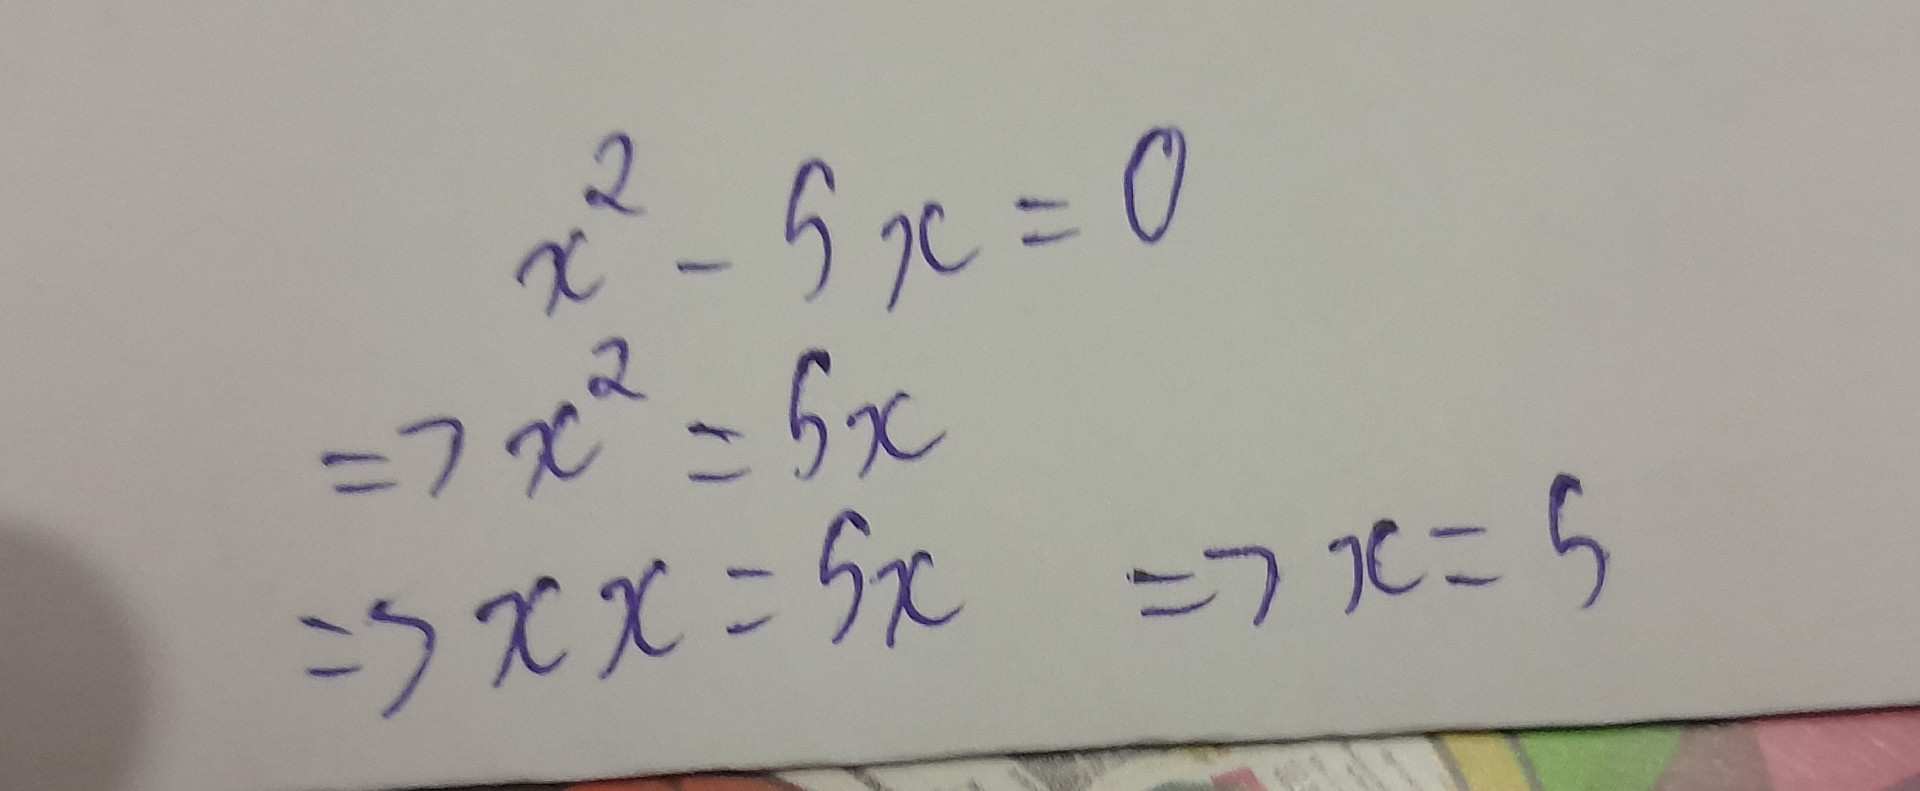 x² - 5x = 0
=> x² = 5x
=> x x = 5x => x = 5